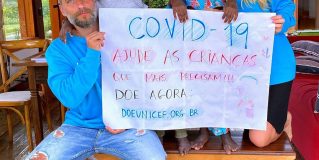 COVID-19
AJUDE AS CRIANÇAS
QUE MAIS PRECISAM!!!
DOE AGORA:
DOEUNICEF.ORG.BR